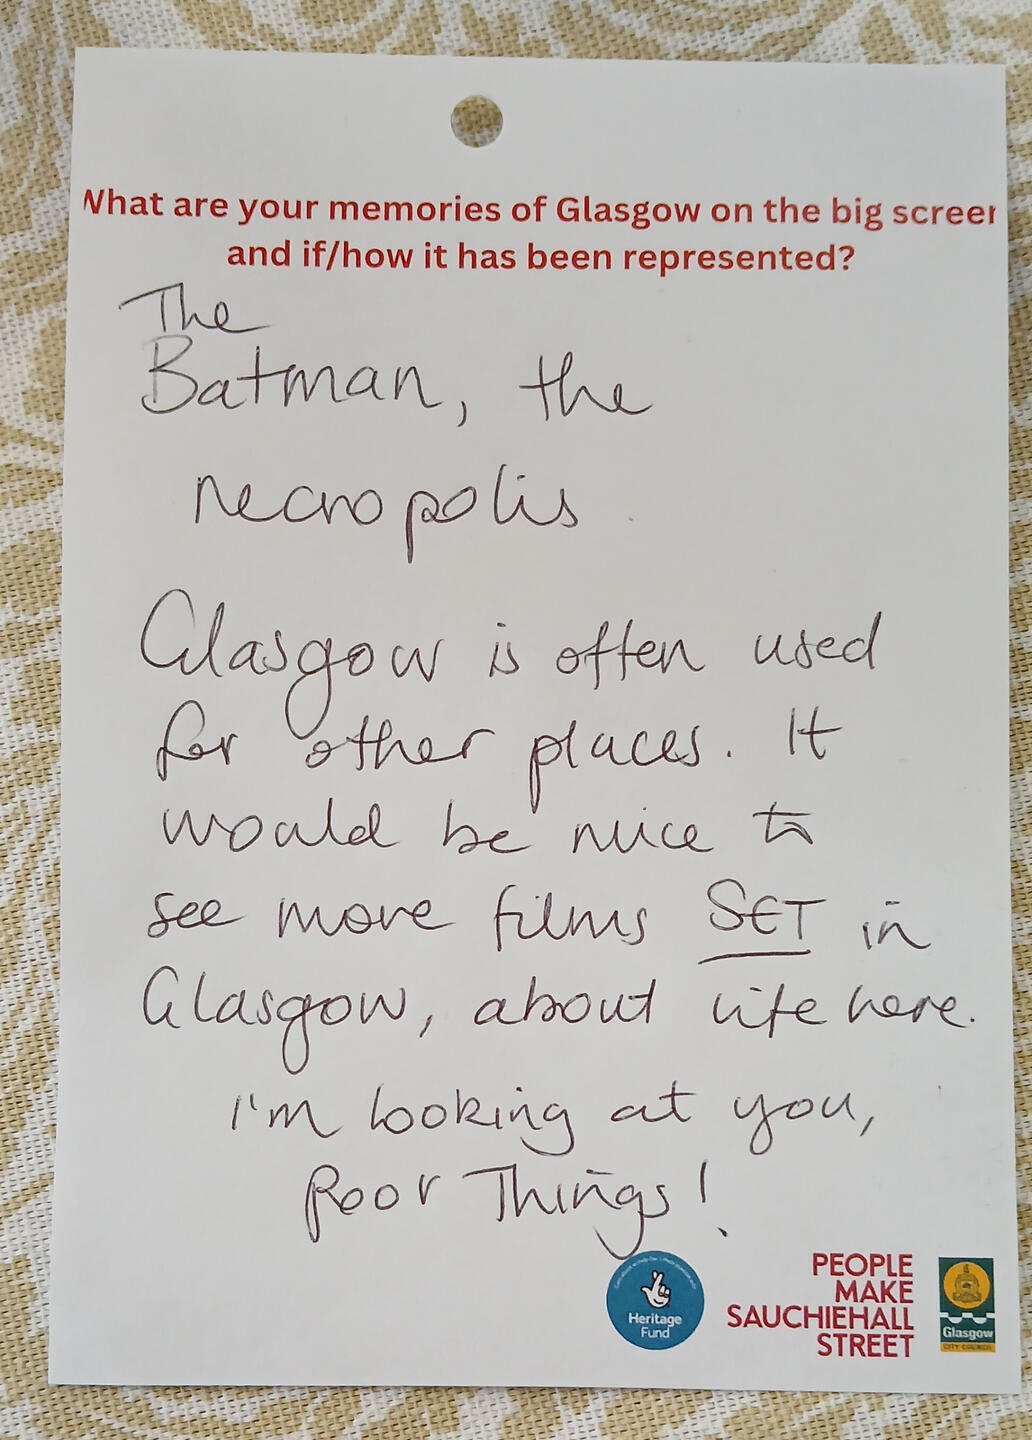 What are your memories of Glasgow on the big screen
and if/how it has been represented?
The
Batman, the
necropolis
Glasgow is often used
for other places. It
would be nice to
see more films SET in
Glasgow, about life here.
I'm looking at you,
Poor Things!
Heritage
Fund
PEOPLE
MAKE
SAUCHIEHALL
STREET
Glasgow
CITY COUNCIL